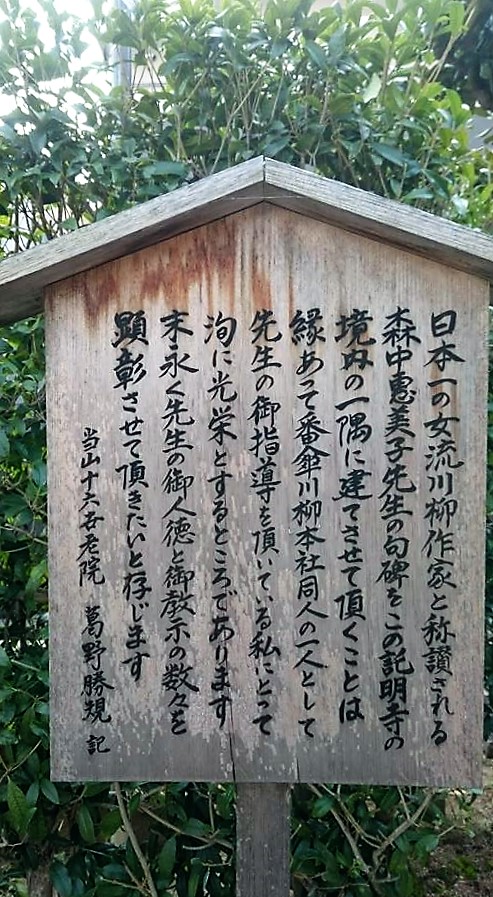 日本一の女流川柳作家と称讃される
森中惠美子先生の句碑をこの託明寺の
境内の一隅に建てさせて頂くことは
縁あって番傘川柳本社同人の一人として
先生の御指導を頂いている私にとって
洵に光栄とするところであります
末永く先生の御人徳と御教示の数々を
顕彰させて頂きたいと存じます
当山十六世老院 葛野勝規 記